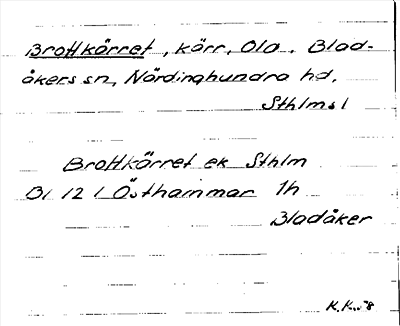 Brottkärret, kärr, Ola. Blad-
åkers sn, Närdinghundra hd,
Sthlms l
Brottkärret ek Sthlm
Bl 12 1 Östhammar 1h
Bladåker